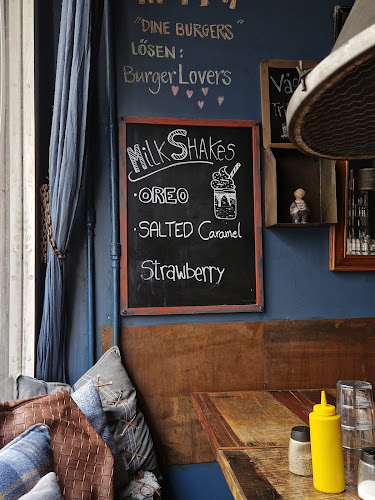 "DINE BURGERS"
LÖSEN:
Burger Lovers
MilkShakes
· OREO
· SALTED Caramel
Strawberry